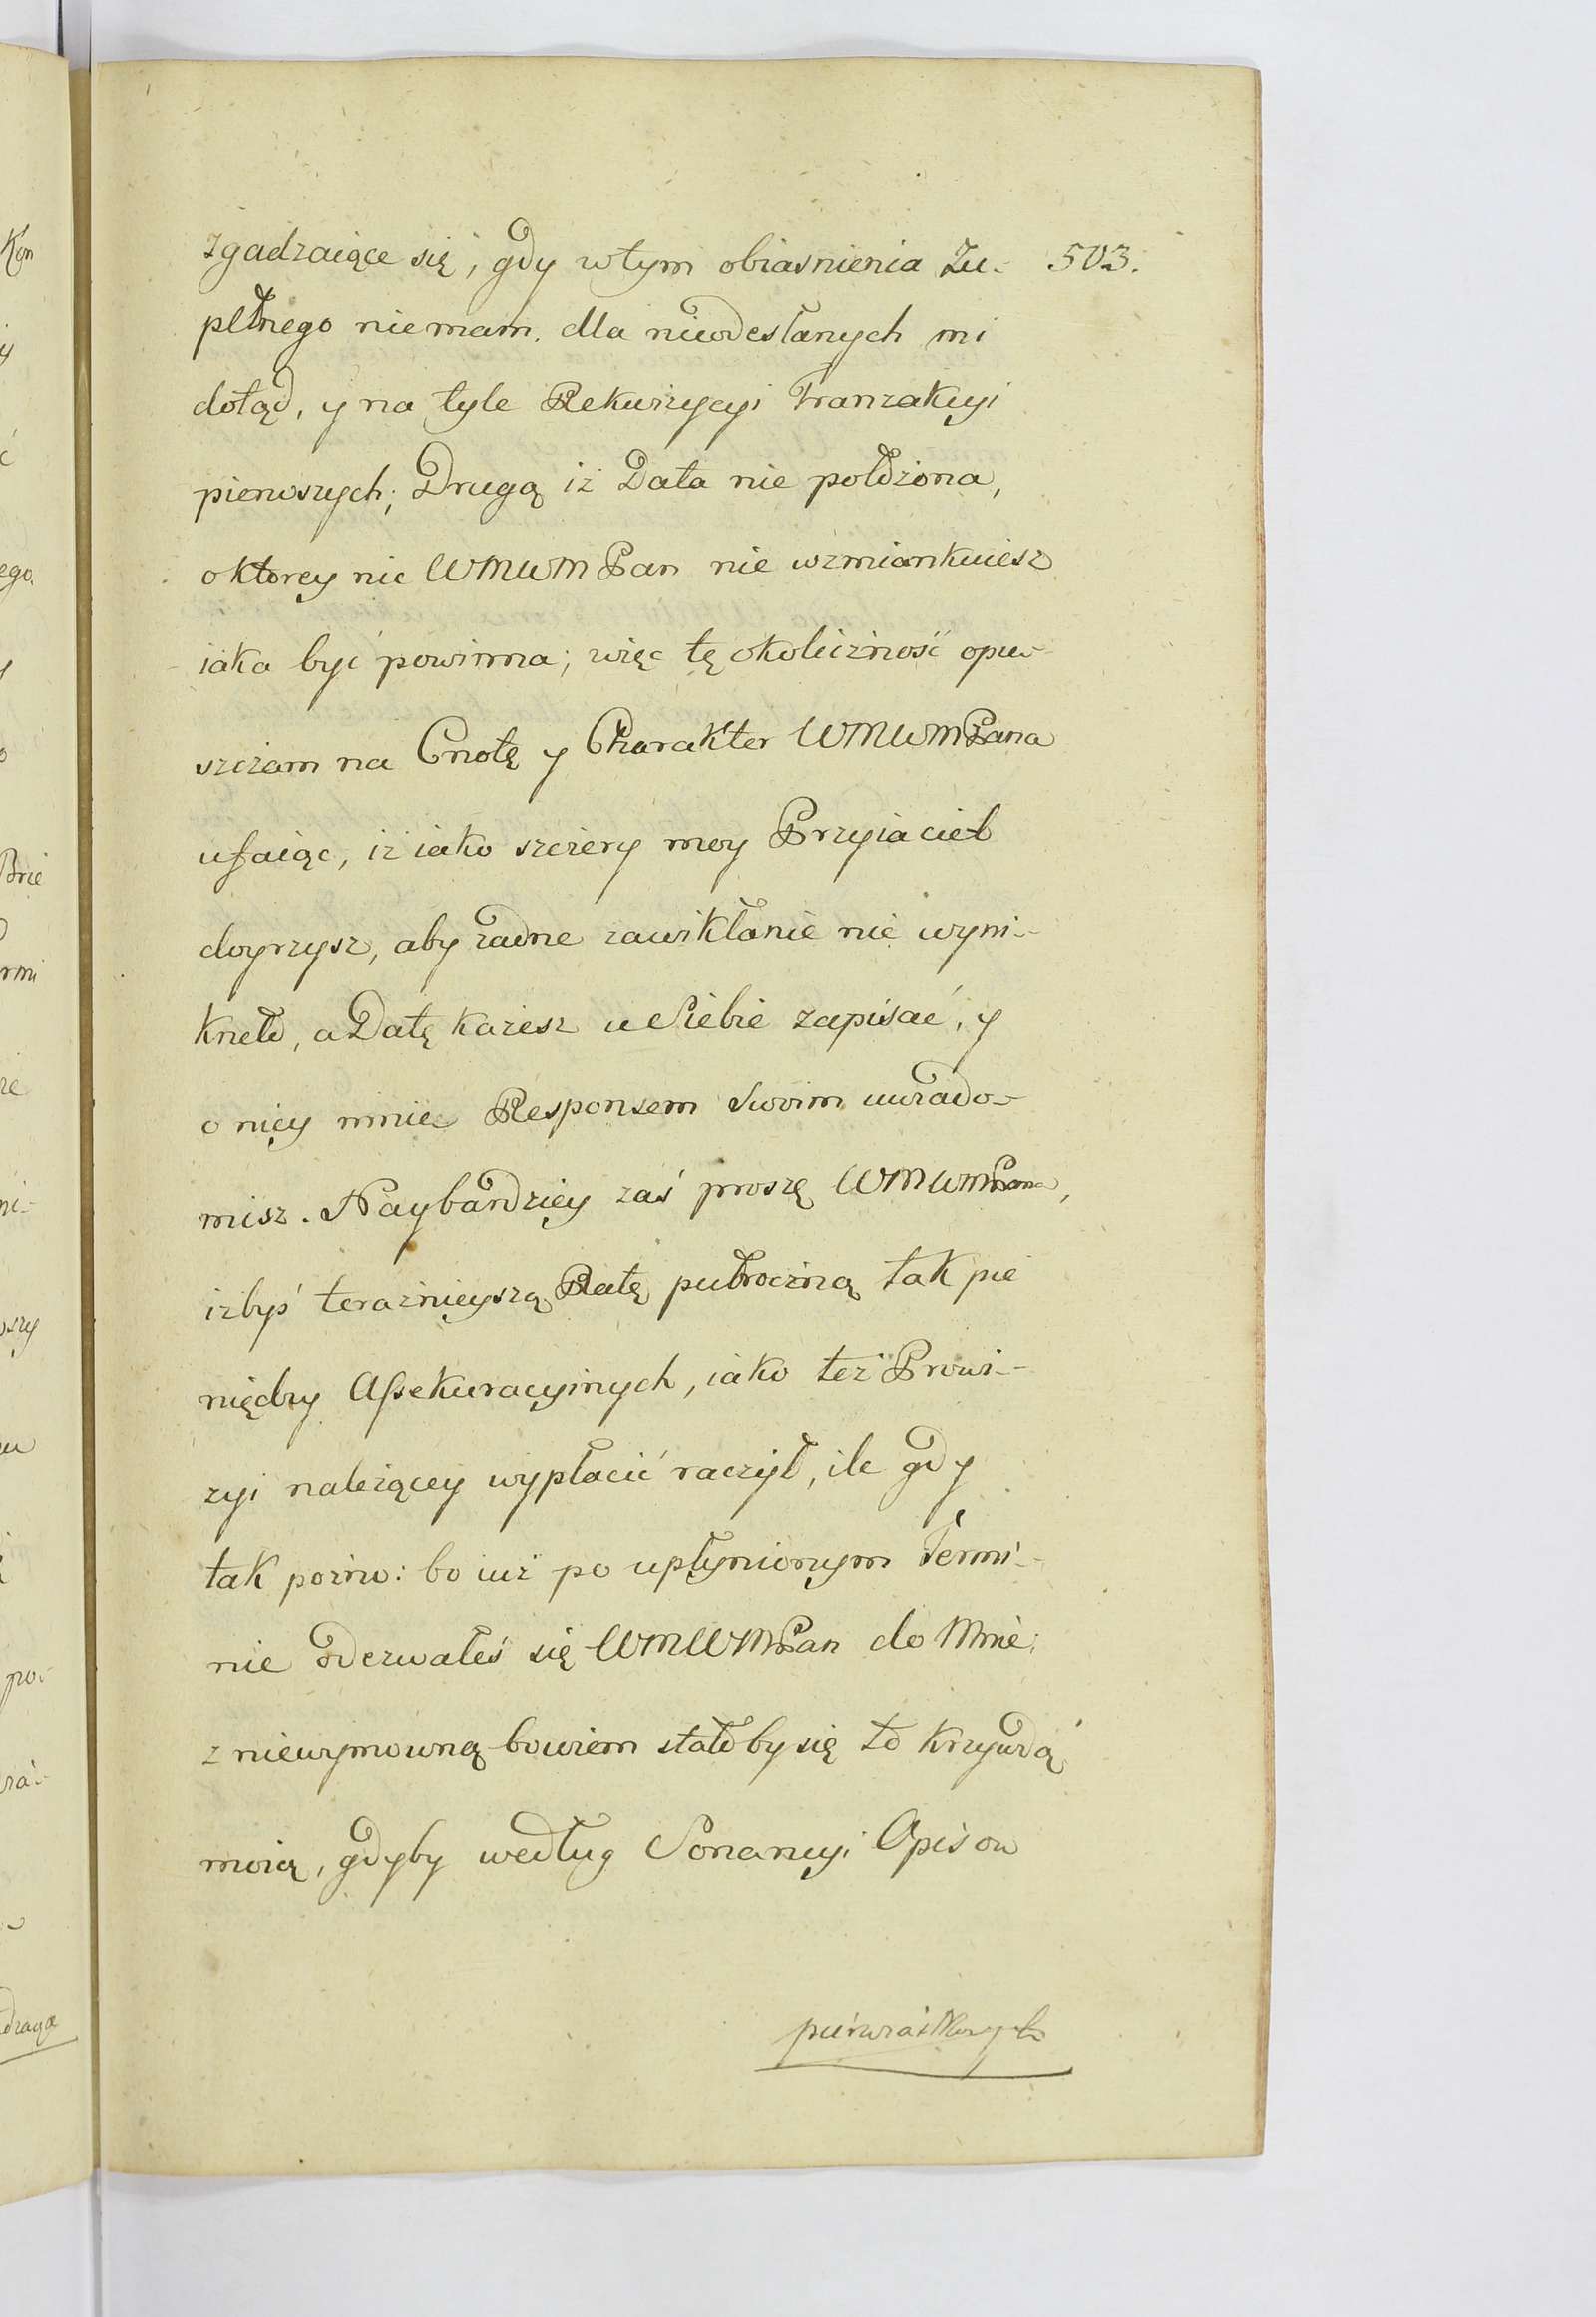 zgadzaiące się, gdy wtym obiasnienia Zu- 503.
pełnego niemam. dla nieodesłanych mi
dotąd, y na tyle Rekwizycyi Tranzakcyi
pierwszych; Drugą iż Data nie położona,
oktorey nic WMWMPan nie wzmiankuiesz
iaka być powinna; więc tę okoliczność opu-
szczam na Cnotę y Charakter WMWMPana
ufaiąc, iż iako szczery moy Przyiaciel
doyrzysz, aby żadne zawikłanie nie wyni-
kneło, a Datę każesz u Siebie zapisać, y
o niey mnie Responsem Swoim uwiado-
misz. Naybardziey zaś proszę WMWMPana,
izbyś teraznieyszą Ratę pułroczną tak pie
niędzy Assekuracyinych, iako też Prowi-
zyi należącey wypłacić raczył, ile gdy
tak pożno: bo iuż po upłynionym Termi-
nie odezwałeś się WMWMPan do Mnie:
z niewymowną bowiem stało by się to krzywdą
moią, gdyby według Sonancyi Opisow
pierwiastkowych
Kon
y
ć
ego.
y
o
Brie
rmi
ze
ni-
wszy
u
po-
drugą